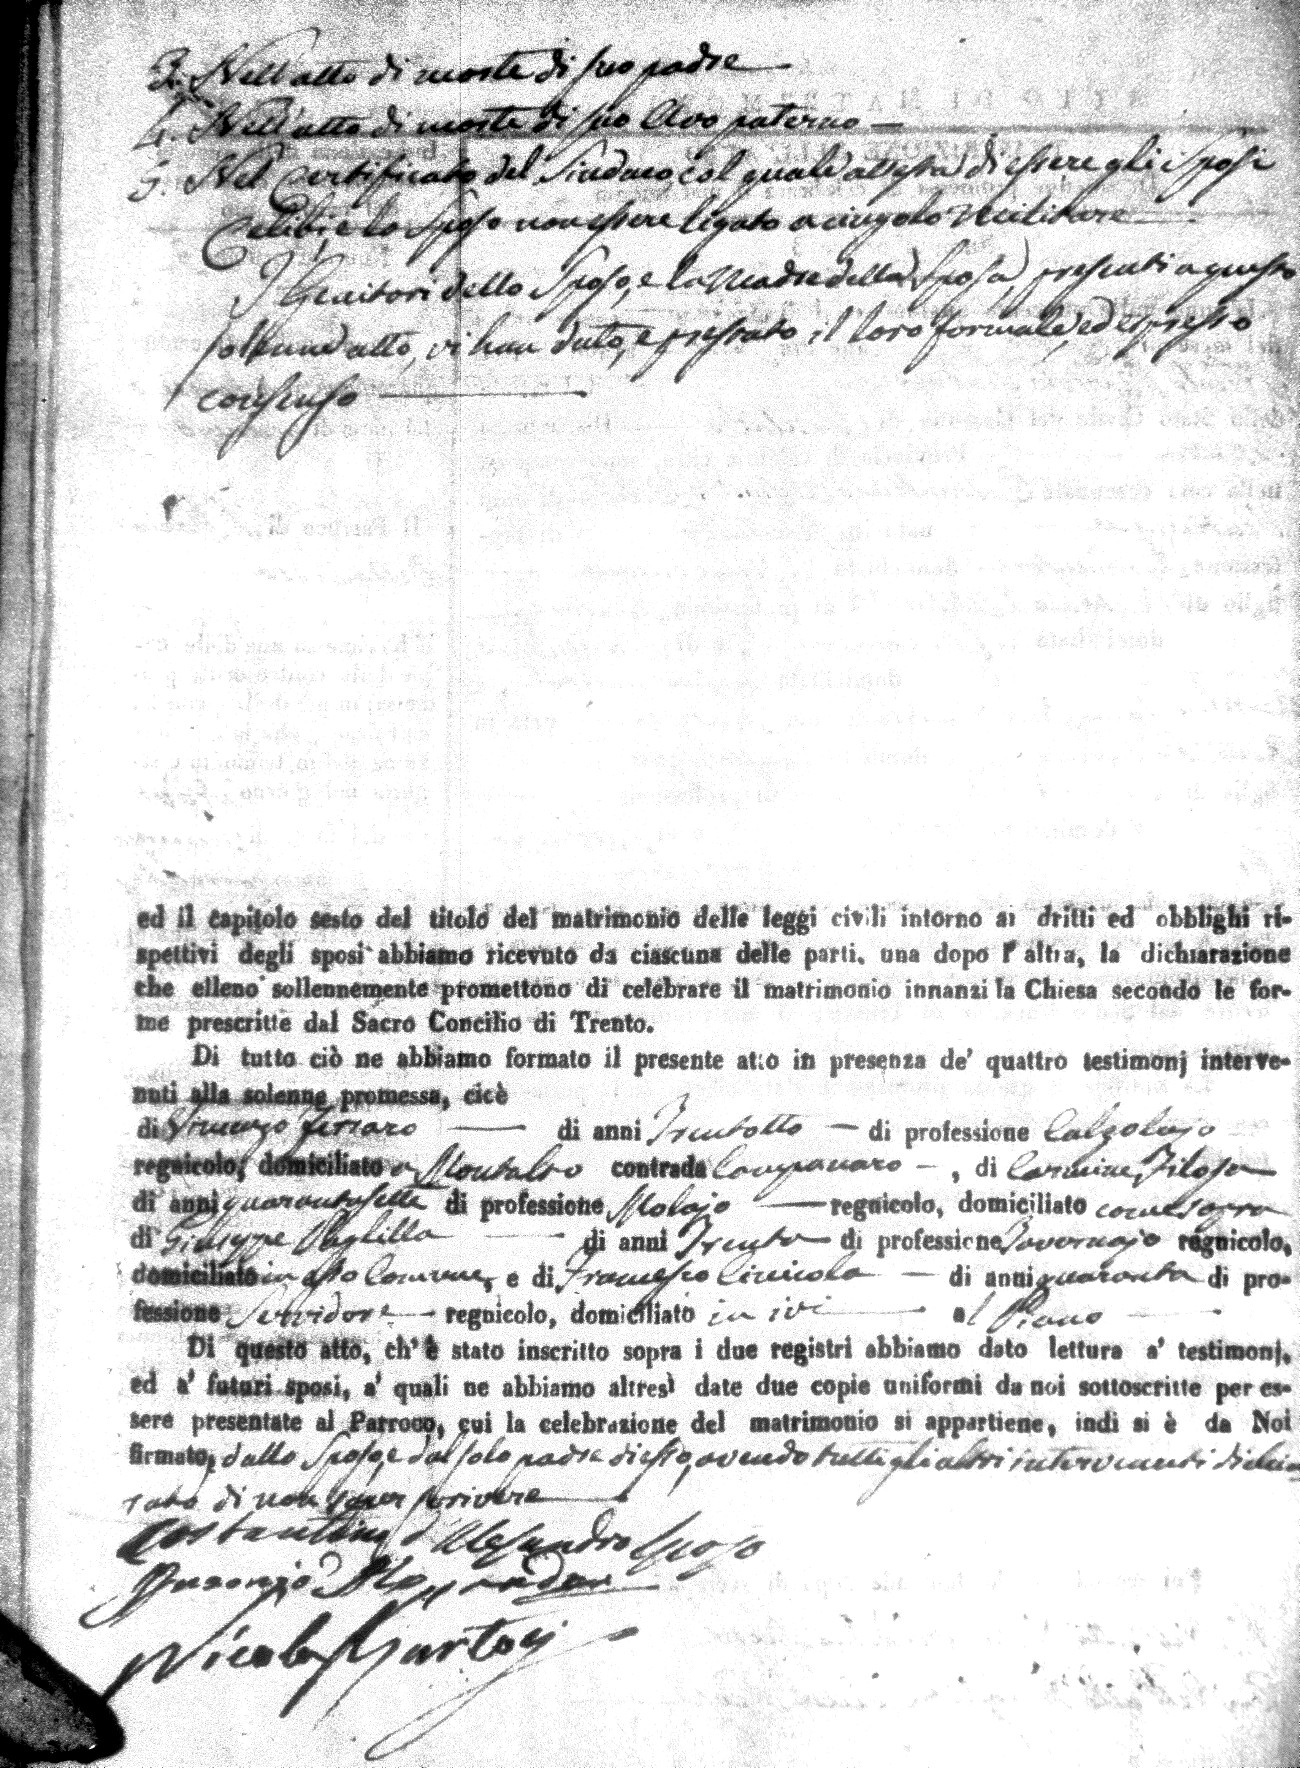 3. Nell'atto di morte di suo padre
4. Nell'atto di morte di suo Avo paterno
5. Nel Certificato del Sindaco col quale attesta di essere gli Sposi
Celibi, e lo Sposo non essere ligato a cingolo Militare
I Genitori dello Sposo, e la Madre della Sposa, presenti a questo
solenne atto, vi han dato, e prestato il loro formale, ed espresso
consenso
ed il capitolo sesto del titolo del matrimonio delle leggi civili intorno ai dritti ed obblighi ri-
spettivi degli sposi abbiamo ricevuto da ciascuna delle parti, una dopo l'altra, la dichiarazione
che elleno sollennemente promettono di celebrare il matrimonio innanzi la Chiesa secondo le for-
me prescritte dal Sacro Concilio di Trento.
Di tutto ciò ne abbiamo formato il presente atto in presenza de' quattro testimonj interve-
nuti alla solenne promessa, cicè
di Vincenzo Ferraro di anni Trentotto di professione Calzolajo
regnicolo, domiciliato a Montalto contrada Campanaro, di Carmine Filosa
di anni quarantasette di professione Molajo regnicolo, domiciliato come sopra
di Giuseppe Paglilla di anni Trenta di professione Tavernajo regnicolo,
domiciliato in esso Comune, e di Francesco Cinicola di anni quaranta di pro-
fessione Servidore regnicolo, domiciliato in ivi al Piano
Di questo atto, ch'è stato inscritto sopra i due registri abbiamo dato lettura a' testimonj,
ed a' futuri sposi, a' quali ne abbiamo altresì date due copie uniformi da noi sottoscritte per es-
sere presentate al Parroco, cui la celebrazione del matrimonio si appartiene, indi si è da Noi
firmato, dallo Sposo, e dal solo padre di esso, avendo tutti gli altri intervenuti dichia
rato di non saper scrivere
Costantino d'Alesandro Sposo
Nicola